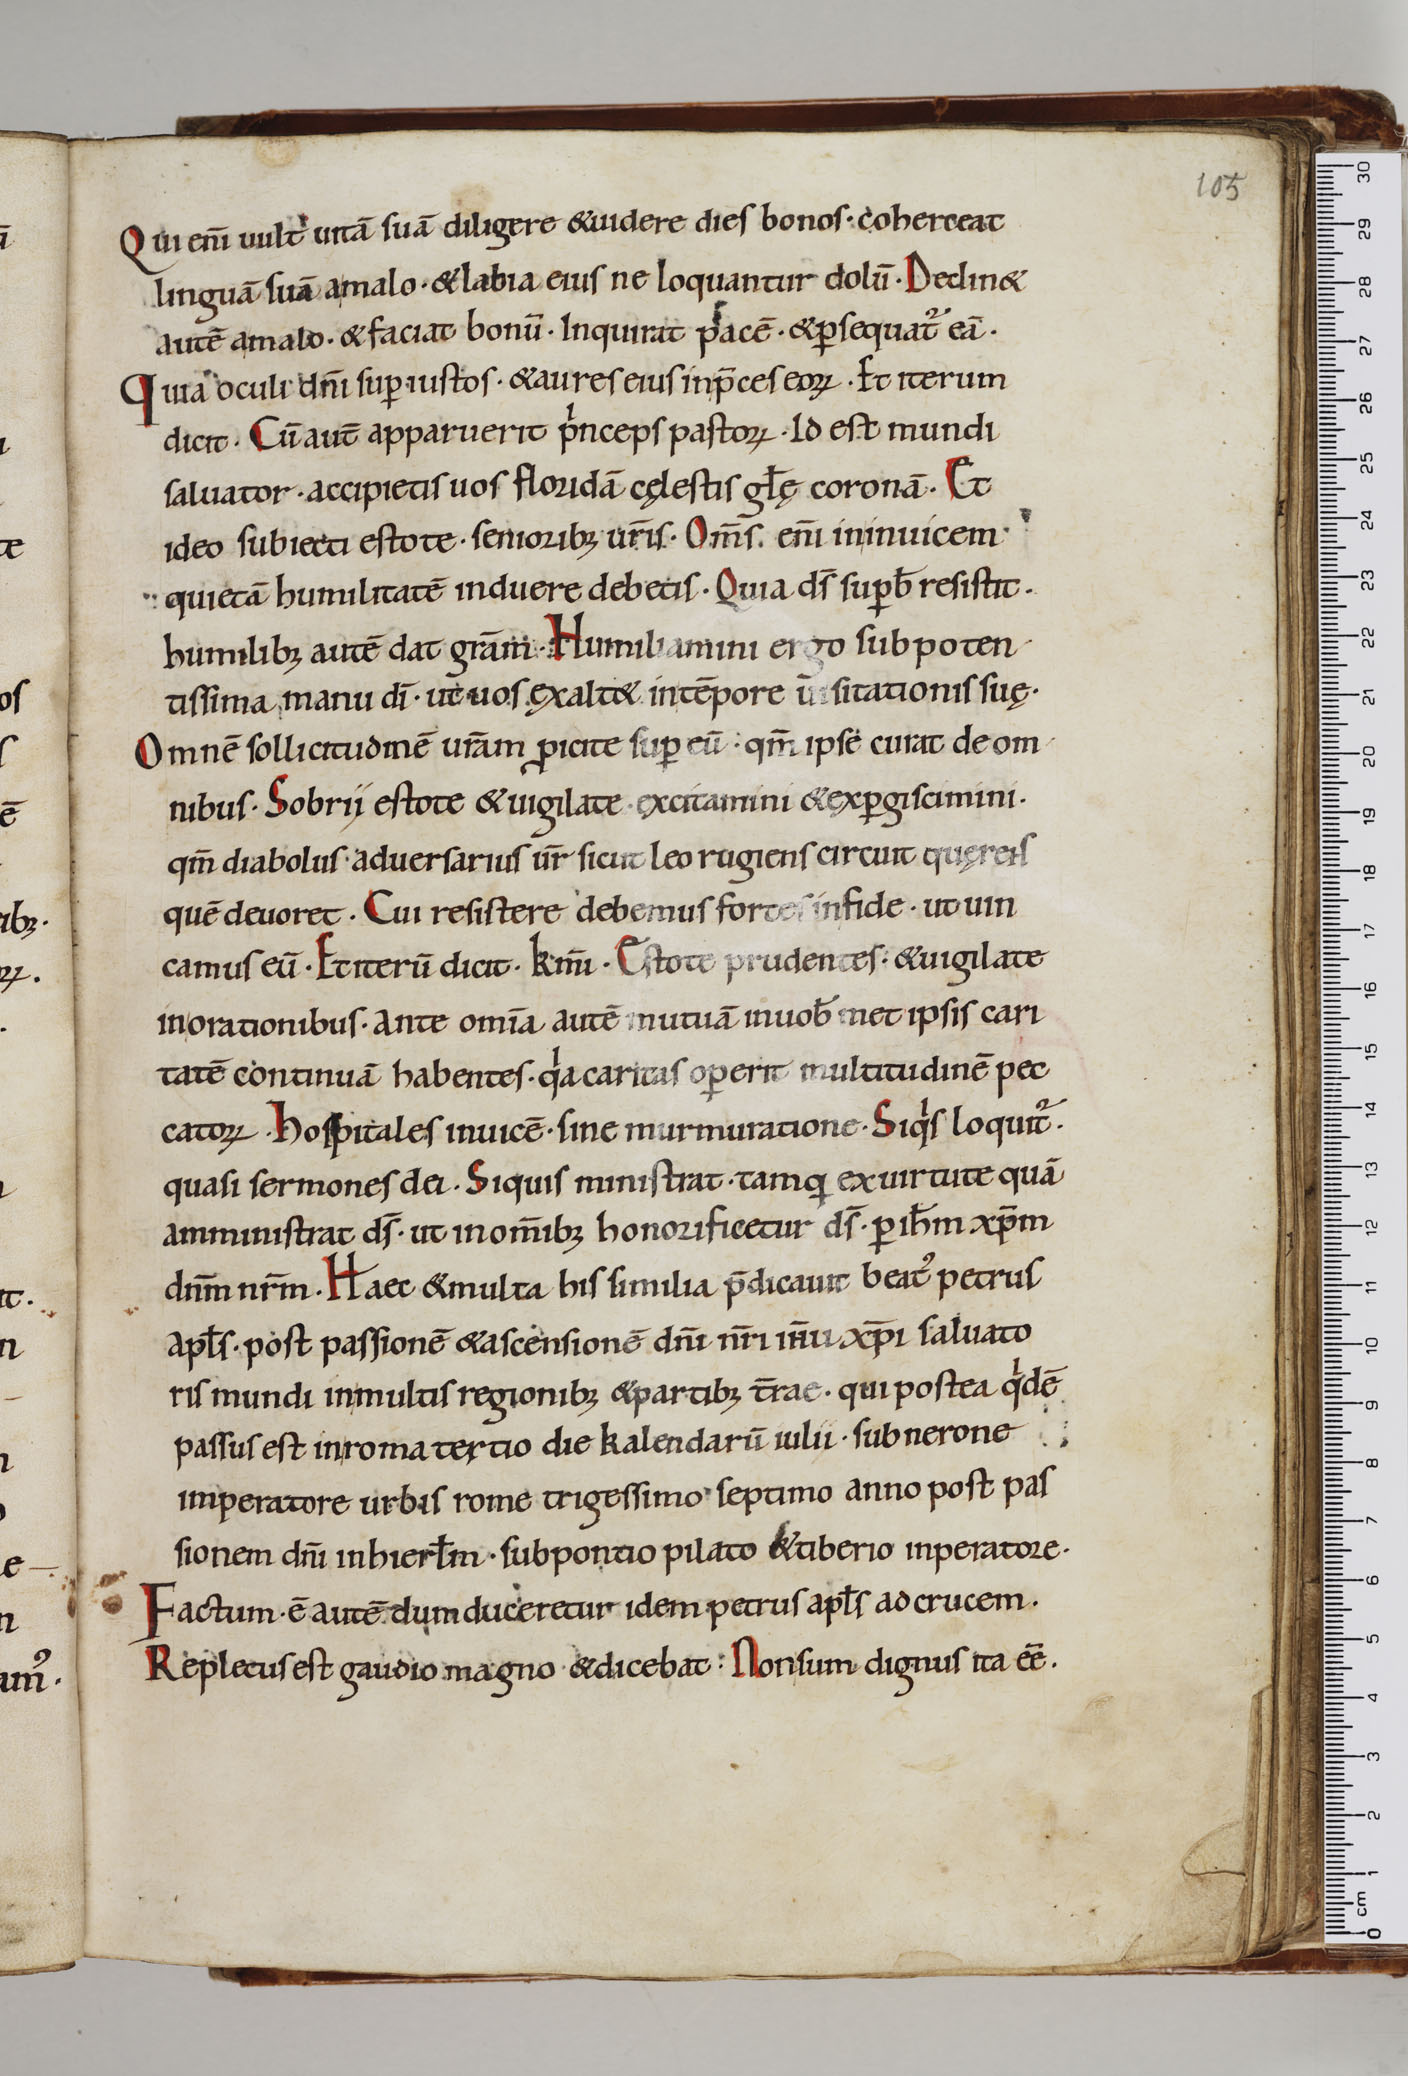 105
Qui eni̅ uult uita̅ sua̅ diligere &uidere dies bonos· coherceat
lingua̅ sua̅ amalo· &labia eius ne loquantur dolu̅· Declin&
aute̅ amalo· &faciat bonu̅· Inquirat pace̅· &ꝑsequat᷒ ea̅·
Quia oculi dn̅i suꝑ iustos· &aures eius inp̅ces eoꝝ· Et iterum
dicit· Cu̅ aut̅ apparuerit pͥnceps pastoꝝ· Id est mundi
saluator· accipietis uos florida̅ cęlestis gl̅ę corona̅· Et
ideo subiecti estote· senioribꝫ ur̅is· Om̅s eni̅ ininuicem
quieta̅ humilitate̅ induere debetis· Quia ds̅ suꝑb̅ resistit·
humilibꝫ aute̅ dat gra̅m· Humiliamini ergo sub poten
tissima manu di̅· ut uos exalt& inte̅pore uisitationis suę·
Omne̅ sollicitudine̅ ura̅m ꝓicite suꝑ eu̅· qm̅ ipse curat de om
nibus· Sobrij estote &uigilate· excitamini &exꝑgiscimini·
qm̅ diabolus· aduersarius ur̅ sicut leo rugiens circuit quęrens
que̅ deuoret· Cui resistere debemus fortes infide· ut uin
camus eu̅· Et iteru̅ dicit· km̅i· Estote prudentes· &uigilate
inorationibus· Ante omi̅a aute̅ mutua̅ inuob̅ met ipsis cari
tate̅ continua̅ habentes· qͥa caritas oꝑerit multitudine̅ pec
catoꝝ· Hospitales inuice̅· sine murmuratione· Siqͥs loquit᷒·
quasi sermones dei· Siquis ministrat· tamqͣ exuirtute qua̅
amministrat ds̅· ut inom̅ibꝫ honorificetur ds̅· ꝑ ih̅m xp̅m
dn̅m nr̅m· Haec &multa his similia p̅dicauit beat᷒ petrus
apl̅s· post passione̅ &ascensione̅ dn̅i nr̅i ih̅u xp̅i saluato
ris mundi inmultis regionibꝫ &partibꝫ t̅rae· qui postea qͥde̅
passus est inroma tertio die kalendaru̅ iulii· sub nerone
imperatore urbis rome trigessimo septimo anno post pas
sionem dn̅i inhierl̅m· subpontio pilato &tiberio inperatore·
Factum· e̅ aute̅ dum duceretur idem petrus apl̅s ad crucem·
Repletus est gaudio magno &dicebat· Non sum dignus ita ee̅·